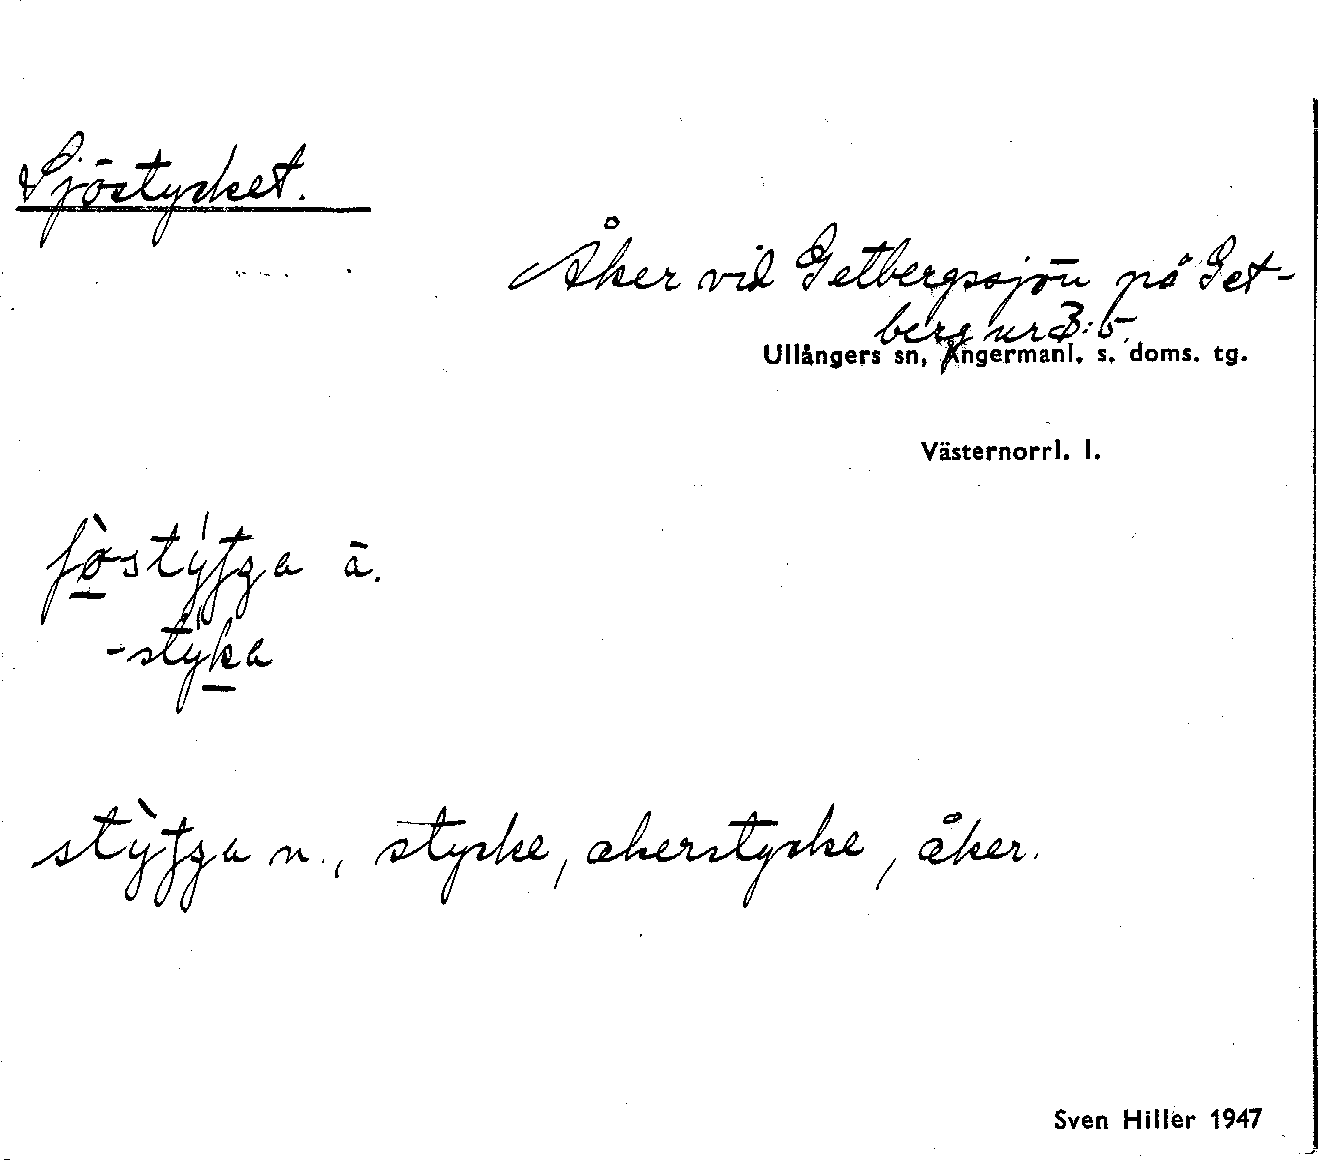 Sjöstycket.
Åker vid Getbergssjön på Get-
berg nr 3:5.
Ullångers sn, Ångermanl. s. doms. tg.
Västernorrl. l.
ā.
n., stycke, åkerstycke, åker.
Sven Hiller 1947